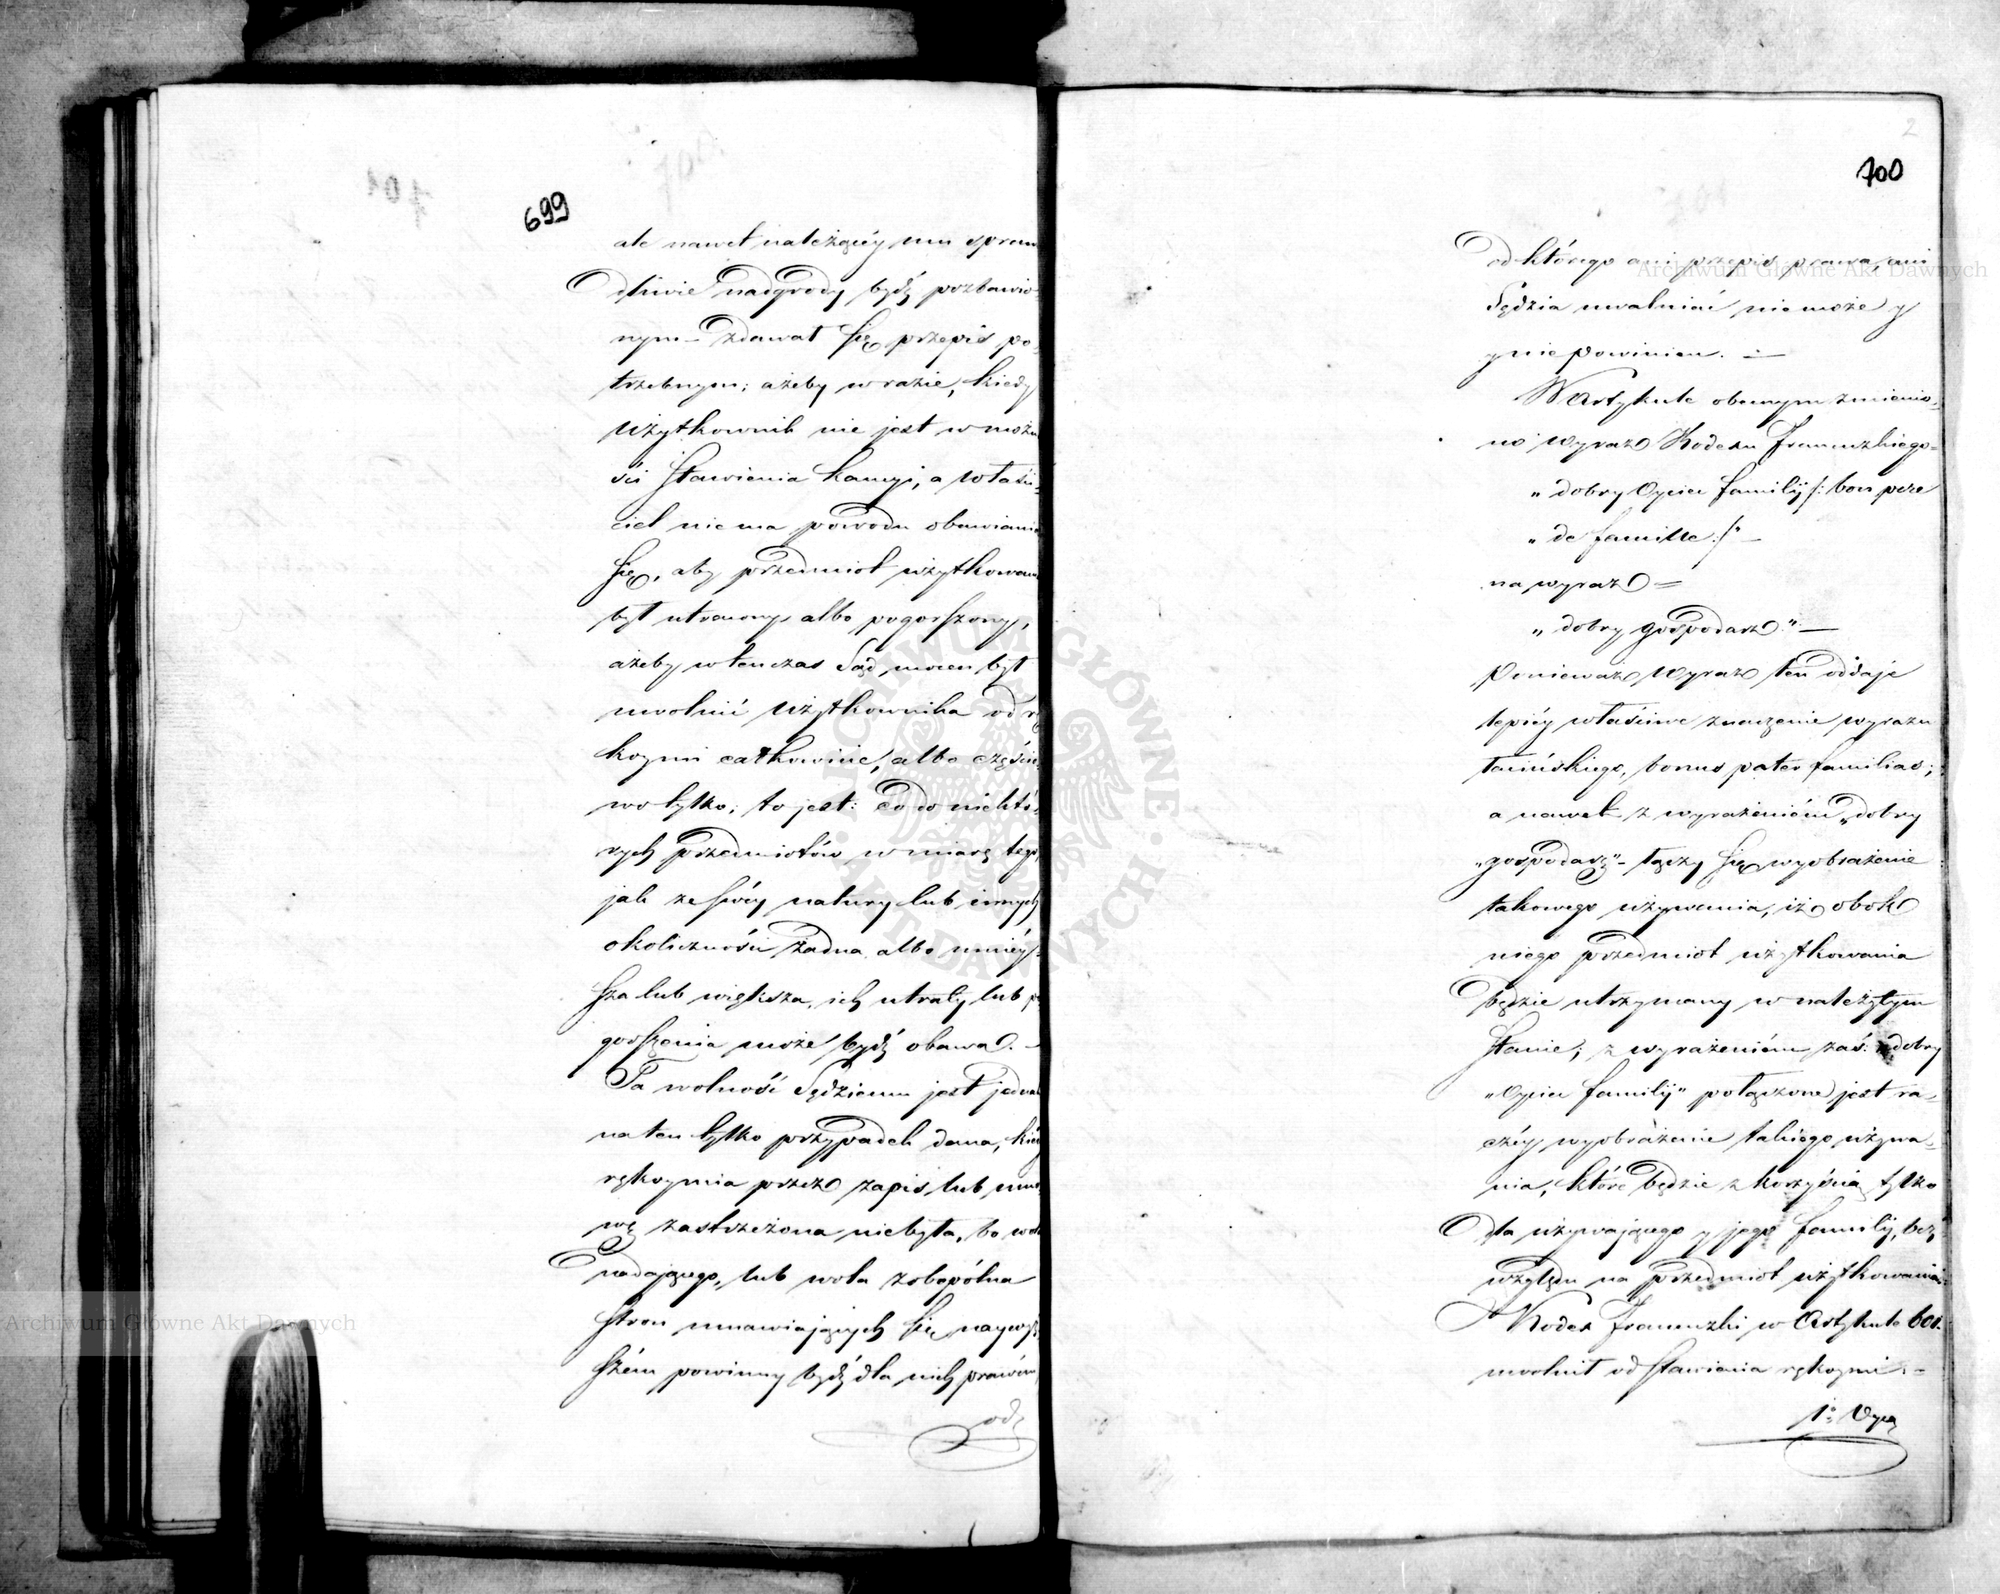 699
ale nawet należącéy mu spraw
dliwie nadgrody bydź pozbawio-
nym – zdawał się przepis po-
trzebnym; ażeby w razie, kiedy
użytkownik nie jest w możn
ści stawienia kaucyi, a właści-
ciel nie ma powodu obawiania
się, aby przedmiot użytkowan
był utracony albo pogorszony,
ażeby wtenczas Sąd mocen był
uwolnić użytkownika od rę
koymi całkowicie, albo częścio
wo tylko; to jest: co do niektó-
rych przedmiotów w miarę tego,
jak ze swéy natury lub innych
okoliczności żadna albo mniéy-
sza lub większa, ich utraty lub po
gorszenia może bydź obawa. –
Ta wolność Sędziemu jest jednak
na ten tylko przypadek dana, kiedy
rękoymia przez zapis lub umo
wę zastrzeżona niebyła, bo wola
nadającego, lub wola zobopólna
stron umawiających się naywyż
szém powinny bydź dla nich prawém
od
2
700
od którego ani przepis prawa, ani
Sędzia uwalniać nie może y
y nie powinien. –
W Artykule obecnym zmienio-
no wyraz Kodexu Francuzkiego =
„dobry Oyciec familij /: bon pere
„de famille :/" –
na wyraz =
„dobry gospodarz." –
Ponieważ wyraz ten oddaje
lepiéy właściwe znaczenie wyrazu
łacińskiego, bonus pater familias;
a nawet z wyrażeniém „dobry
„gospodarz" – łączy się wyobrażenie
takowego używania, iż obok
niego przedmiot użytkowania
będzie utrzymany w należytym
stanie; z wyrażeniém zaś: „dobry
„Oyciec familij" połączone jest ra-
czéy wyobrażenie takiego używa-
nia, które będzie z korzyścią tylko
dla używającego y jego familij, bez
względu na przedmiot użytkowania.
Kodex Francuzki w Artykule 601.
uwolnił od stawiania rękoymi. –
1o Oyca
Archiwum Główne Akt Dawnych
Archiwum Główne Akt Dawnych
ARCHIWUM GŁÓWNE AKT DAWNYCH